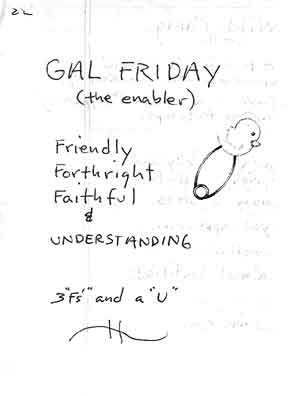 22
GAL FRIDAY
(the enabler)
Friendly
Forthright
Faithful
&
UNDERSTANDING
3 "Fs'" and a "U"